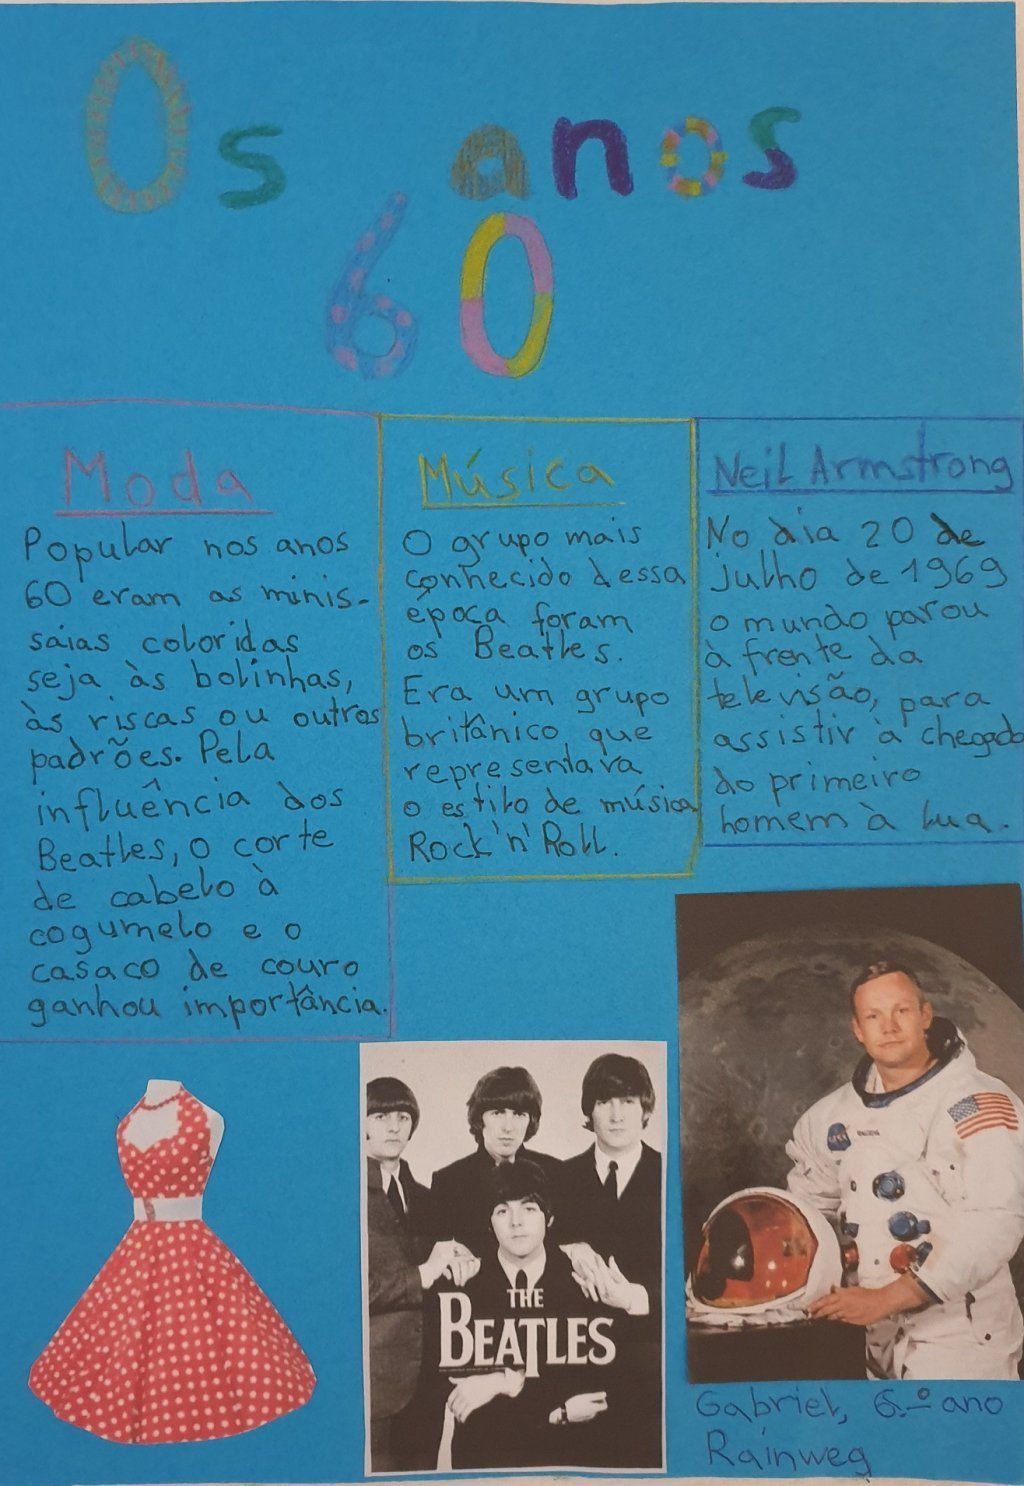 Os anos
60
Moda
Popular nos anos
60 eram as minis-
saias coloridas
seja às bolinhas,
às riscas ou outros
padrões. Pela
influência dos
Beatles, o corte
de cabelo à
cogumelo e o
casaco de couro
ganhou importância.
Música
O grupo mais
conhecido dessa
época foram
os Beatles.
Era um grupo
britânico que
representava
o estilo de música
Rock'n'Roll.
Neil Armstrong
No dia 20 de
julho de 1969
o mundo parou
à frente da
televisão, para
assistir à chegada
do primeiro
homem à lua.
THE
BEATLES
NASA
Gabriel, 6.º ano
Rainweg